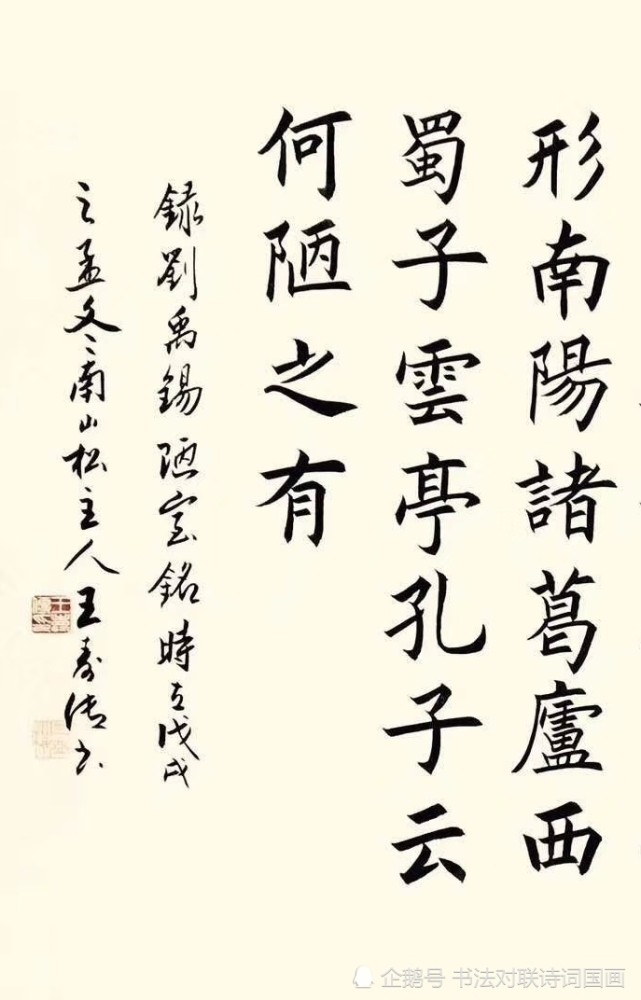 形南陽諸葛廬西
蜀子雲亭孔子云
何陋之有
録劉禹錫陋室銘時在戊戌
之孟冬南山松主人王壽清书
企鹅号 书法对联诗词国画